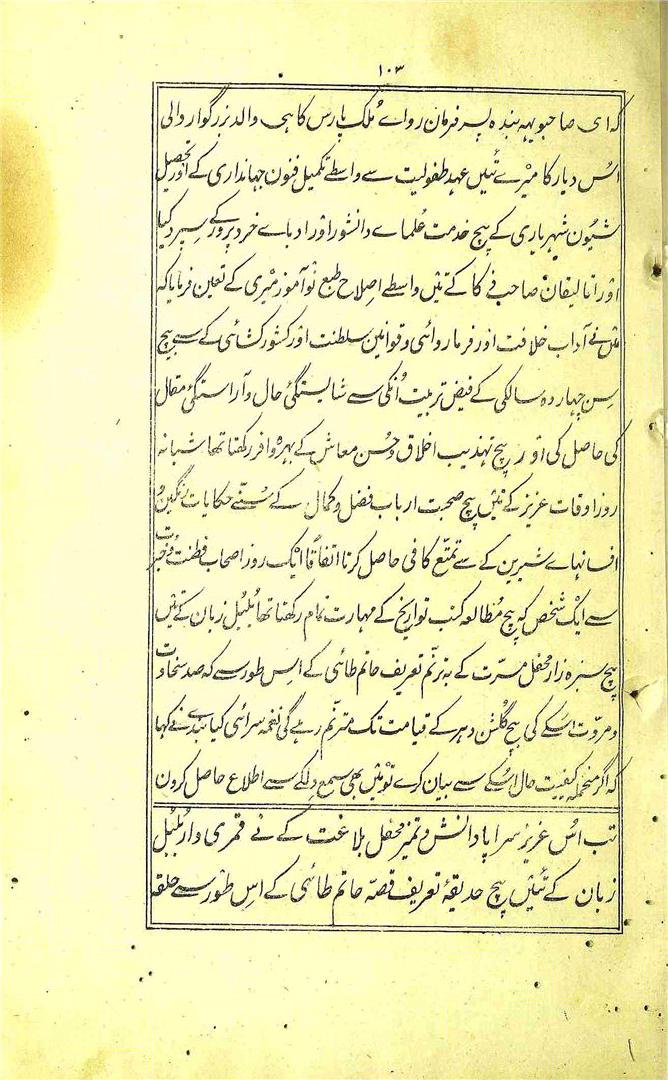 ۱۰۳
کہ ای صاحبو یہہ بندہ پسر فرمان رواے مُلک پارس کا ہی والد بزرگوار والی
اُس دیار کا میرے تئیں عہد طفولیت سے واسطے تکمیل فنون جہانداری کے اور تحصیل
شیُون شہریاری کے بیچ خدمت عُلماے دانشور اور ادباے خرد پرور کے سپرد کیا
اور اتالیقان صاحب ذکا کے تئیں واسطے اِصلاح طبع نوآموز میری کے تعین فرمایا کہ
میں نے آداب خلافت اور فرماروائی و قوانین سلطنت اور کشور کشائی کے سے بیچ
سِن چہاردہ سالگی کے فیض تربیت اُنکی سے شایستگیٔ حال و آراستگیٔ مقال
کی حاصل کی اور بیچ تہذیب اخلاق و حُسن معاش کے بہرہ وافر رکھتا تھا شبانہ
روز اوقات عزیز کے تئیں بیچ صحبت ارباب فضل و کمال کے سُننے حکایات رنگین و
افسانہاے شیرین کے سے تمتّع کافی حاصل کرتا اتفاقاً ایک روز اصحاب فطنت و خبرت
سے ایک شخص کہ بیچ مُطالعہ کتب تواریخ کے مہارت تمام رکھتا تھا بُلبُل زبان کے تئیں
بیچ سبزہ زار محفل مسرّت کے بہ ترنّم تعریف حاتم طائی کے اِس طور سے کہ صد سخاوت
و مروّت اُسکے کی بیچ گُلشن دہر کے قیامت تک مترنّم رہے گی نغمہ سرائی کیا بندے نے کہا
کہ اگر منجملہ کیفیت حال اُسکے سے بیان کرے تو میں بھی سمع دلکے سے اطلاع حاصل کرون
تب اُس عزیز سراپا دانش و تمیز محفل بلاغت کے نے قمری وار بُلبُل
زبان کے تئیں بیچ حدیقۂ تعریف قصّہ حاتم طائی کے اِس طور سے حلقہ